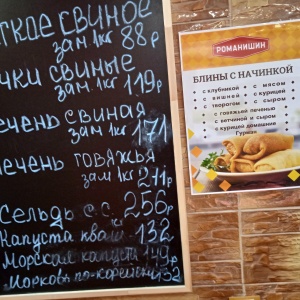 ГКОЕ СВИНОЕ
ЗАМ 1КГ 88Р
ЧКИ СВИНЫЕ
ЗАМ. 1КГ 119Р
ЕЧЕНЬ СВИНАЯ
ЗАМ 1КГ 171
ЕЧЕНЬ ГОВЯЖЬЯ
ЗАМ 1КГ 271Р
Сельдь с.с. КГ 256
Капуста кваш. 132
Морская капуста 149Р
Морковь по-корейски 132
РОМАНИШИН
БЛИНЫ С НАЧИНКОЙ
• с клубникой • с мясом
• с вишней • с курицей
• с творогом • с сыром
• с говяжьей печенью
• с ветчиной и сыром
• с курицей домашние
Гурман